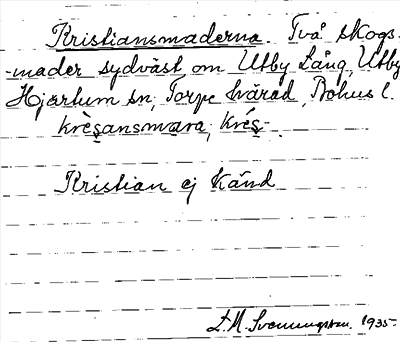 Kristiansmaderna. Två skogs-
-mader sydväst om Utby Lång, Utby
Hjärtum sn, Torpe härad, Bohus l.
krèsansmara, krés-.
Kristian ej känd
L. M. Svenungsson. 1935.